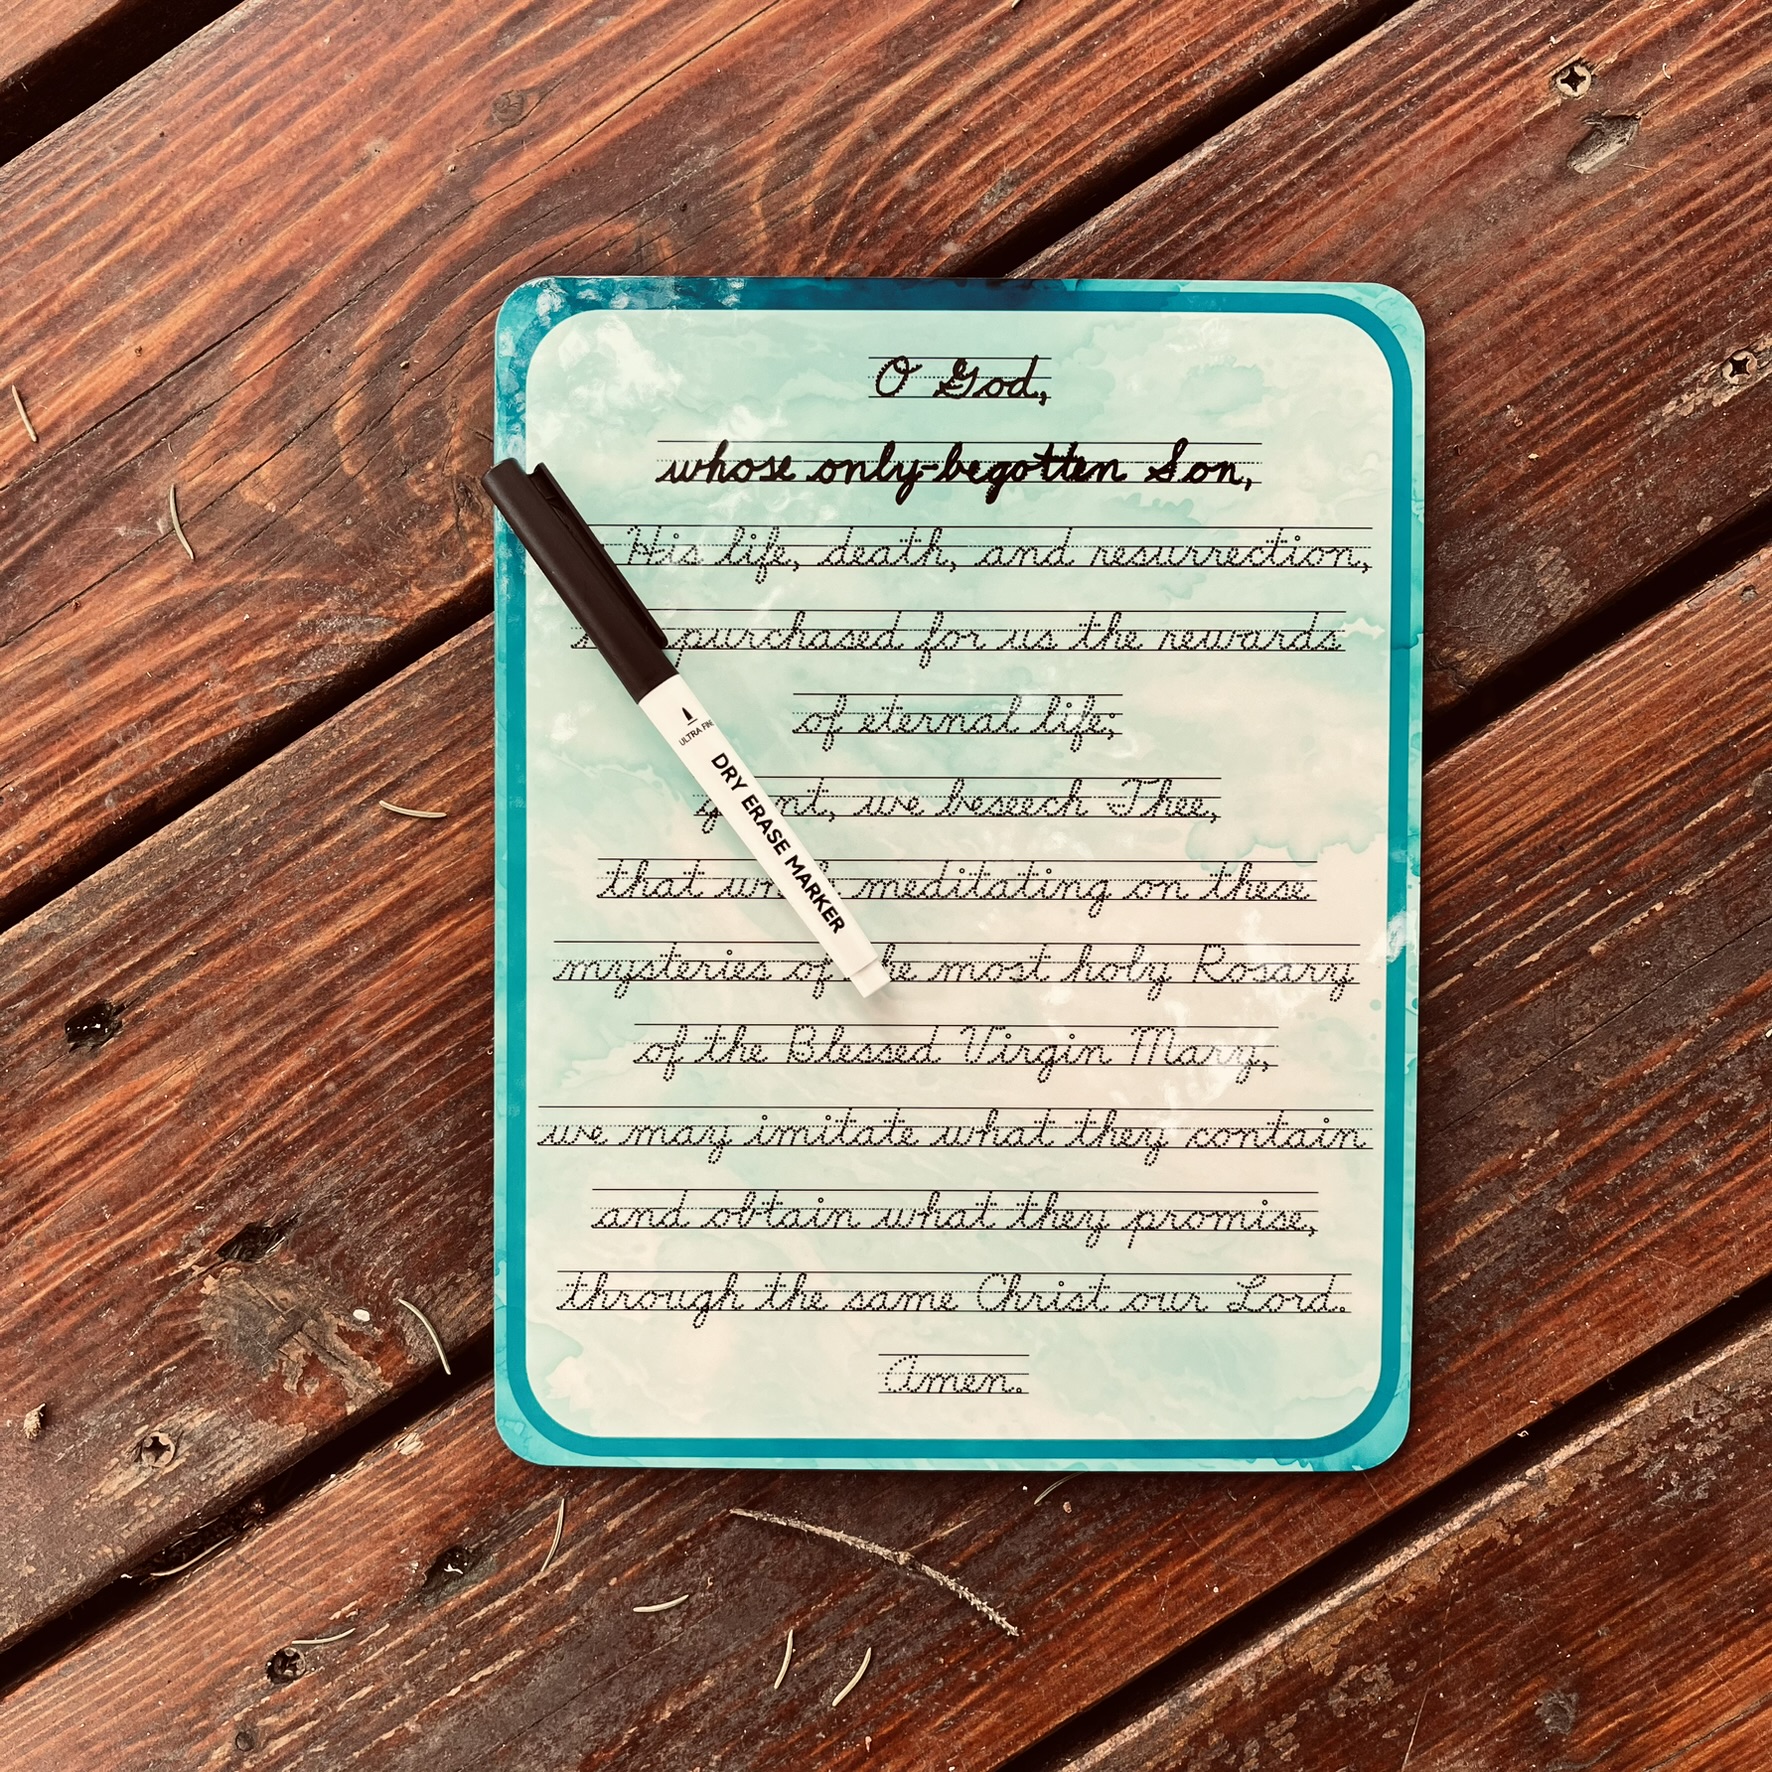 O God,
whose only-begotten Son,
His life, death, and resurrection,
purchased for us the rewards
of eternal life;
we beseech Thee,
that meditating on these
mysteries of the most holy Rosary
of the Blessed Virgin Mary,
we may imitate what they contain
and obtain what they promise,
through the same Christ our Lord.
Amen.
ULTRA FINE
DRY ERASE MARKER